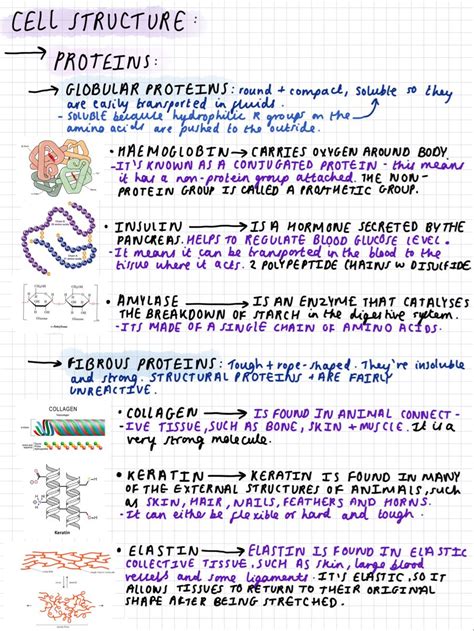 CELL STRUCTURE:
→ PROTEINS:
→ GLOBULAR PROTEINS: round + compact, soluble so they
are easily transported in fluids.
- SOLUBLE because hydrophilic R groups on the
amino acids are pushed to the outside.
• HAEMOGLOBIN → CARRIES OXYGEN AROUND BODY
- IT'S KNOWN AS A CONJUGATED PROTEIN - this means
it has a non-protein group attached. THE NON-
PROTEIN GROUP IS CALLED A PROSTHETIC GROUP.
• INSULIN → IS A HORMONE SECRETED BY THE
PANCREAS. HELPS TO REGULATE BLOOD GLUCOSE LEVEL.
- It means it can be transported in the blood to the
tissue where it acts. 2 POLYPEPTIDE CHAINS w DISULFIDE
• AMYLASE → IS AN ENZYME THAT CATALYSES
THE BREAKDOWN OF STARCH in the digestive system.
- ITS MADE OF A SINGLE CHAIN OF AMINO ACIDS.
→ FIBROUS PROTEINS: Tough + rope-shaped. They're insoluble
and strong. STRUCTURAL PROTEINS + ARE FAIRLY
UNREACTIVE.
COLLAGEN
• COLLAGEN → IS FOUND IN ANIMAL CONNECT-
-IVE TISSUE, SUCH AS BONE, SKIN + MUSCLE. It is a
very strong molecule.
• KERATIN → KERATIN IS FOUND IN MANY
OF THE EXTERNAL STRUCTURES OF ANIMALS, such
as SKIN, HAIR, NAILS, FEATHERS AND HORNS.
- It can either be flexible or hard and tough.
Keratin
• ELASTIN → ELASTIN IS FOUND IN ELASTIC
COLLECTIVE TISSUE, SUCH AS skin, large blood
vessels and some ligaments. IT'S ELASTIC, SO IT
ALLOWS TISSUES TO RETURN TO THEIR ORIGINAL
SHAPE AFTER BEING STRETCHED.